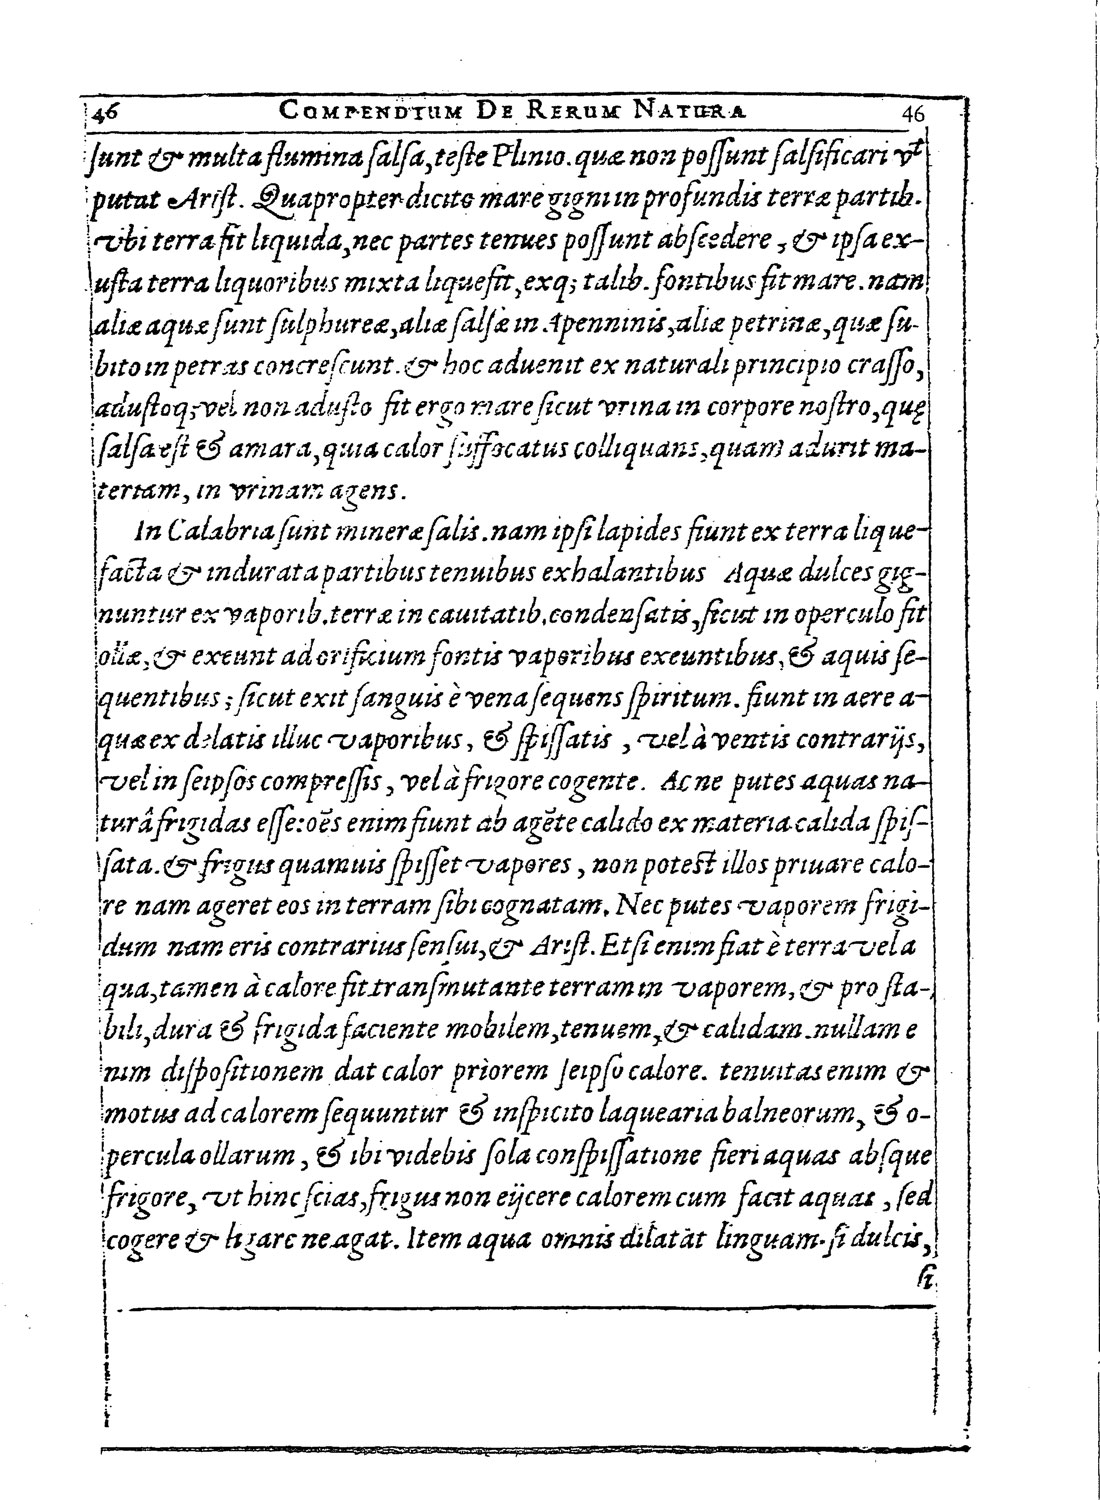 46 COMPENDIUM DE RERUM NATURA 46
ſunt & multa flumina ſalſa, teſte Plinio. quæ non poſſunt ſalſificari vt
putat Ariſt. Quapropter dicito mare gigni in profundis terræ partib.
vbi terra fit liquida, nec partes tenues poſſunt abſcedere, & ipſa ex-
uſta terra liquoribus mixta liquefit, exq; talib. fontibus fit mare. nam
aliæ aquæ ſunt ſulphureæ, aliæ ſalſè in Apenninis, aliæ petrinæ, quæ ſu-
bito in petras concreſcunt. & hoc aduenit ex naturali principio craſſo,
aduſtoq; vel non aduſto fit ergo mare ſicut vrina in corpore noſtro, quę
ſalſa eſt & amara, quia calor ſuffocatus colliquans, quam adurit ma-
teriam, in vrinam agens.
In Calabria ſunt mineræ ſalis. nam ipſi lapides fiunt ex terra lique-
facta & indurata partibus tenuibus exhalantibus Aquæ dulces gig-
nuntur ex vaporib. terræ in cauitatib. condenſatis, ſicut in operculo fit
ollæ, & exeunt ad orificium fontis vaporibus exeuntibus, & aquis ſe-
quentibus; ſicut exit ſanguis è vena ſequens ſpiritum. fiunt in aere a-
quæ ex delatis illuc vaporibus, & ſpiſſatis, vel à ventis contrarijs,
vel in ſeipſos compreſſis, vel à frigore cogente. Ac ne putes aquas na-
turâ frigidas eſſe: oẽs enim fiunt ab agẽte calido ex materia calida ſpiſ-
ſata. & frigus quamuis ſpiſſet vapores, non poteſt illos priuare calo-
re nam ageret eos in terram ſibi cognatam. Nec putes vaporem frigi-
dum nam eris contrarius ſenſui, & Ariſt. Etſi enim fiat è terra vel a
qua, tamen à calore fit tranſmutante terram in vaporem, & pro ſta-
bili, dura & frigida faciente mobilem, tenuem, & calidam. nullam e
nim diſpoſitionem dat calor priorem ſeipſo calore. tenuitas enim &
motus ad calorem ſequuntur & inſpicito laquearia balneorum, & o-
percula ollarum, & ibi videbis ſola conſpiſſatione fieri aquas abſque
frigore, vt hinc ſcias, frigus non eijcere calorem cum facit aquas, ſed
cogere & ligare ne agat. Item aqua omnis dilatat linguam. ſi dulcis,
ſi